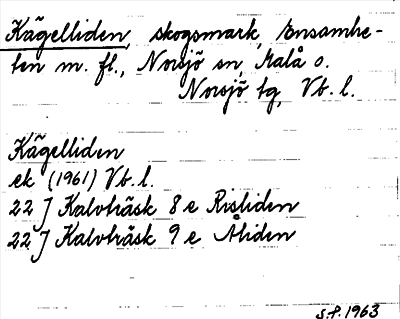 Kägelliden, skogsmark, Ensamhe-
ten m. fl., Norsjö sn, Malå o.
Norsjö tg, Vb. l.
Kägelliden
ek (1961) Vb. l.
22 J Kalvträsk 8 e Risliden
22 J Kalvträsk 9 e Åliden
S.F. 1963